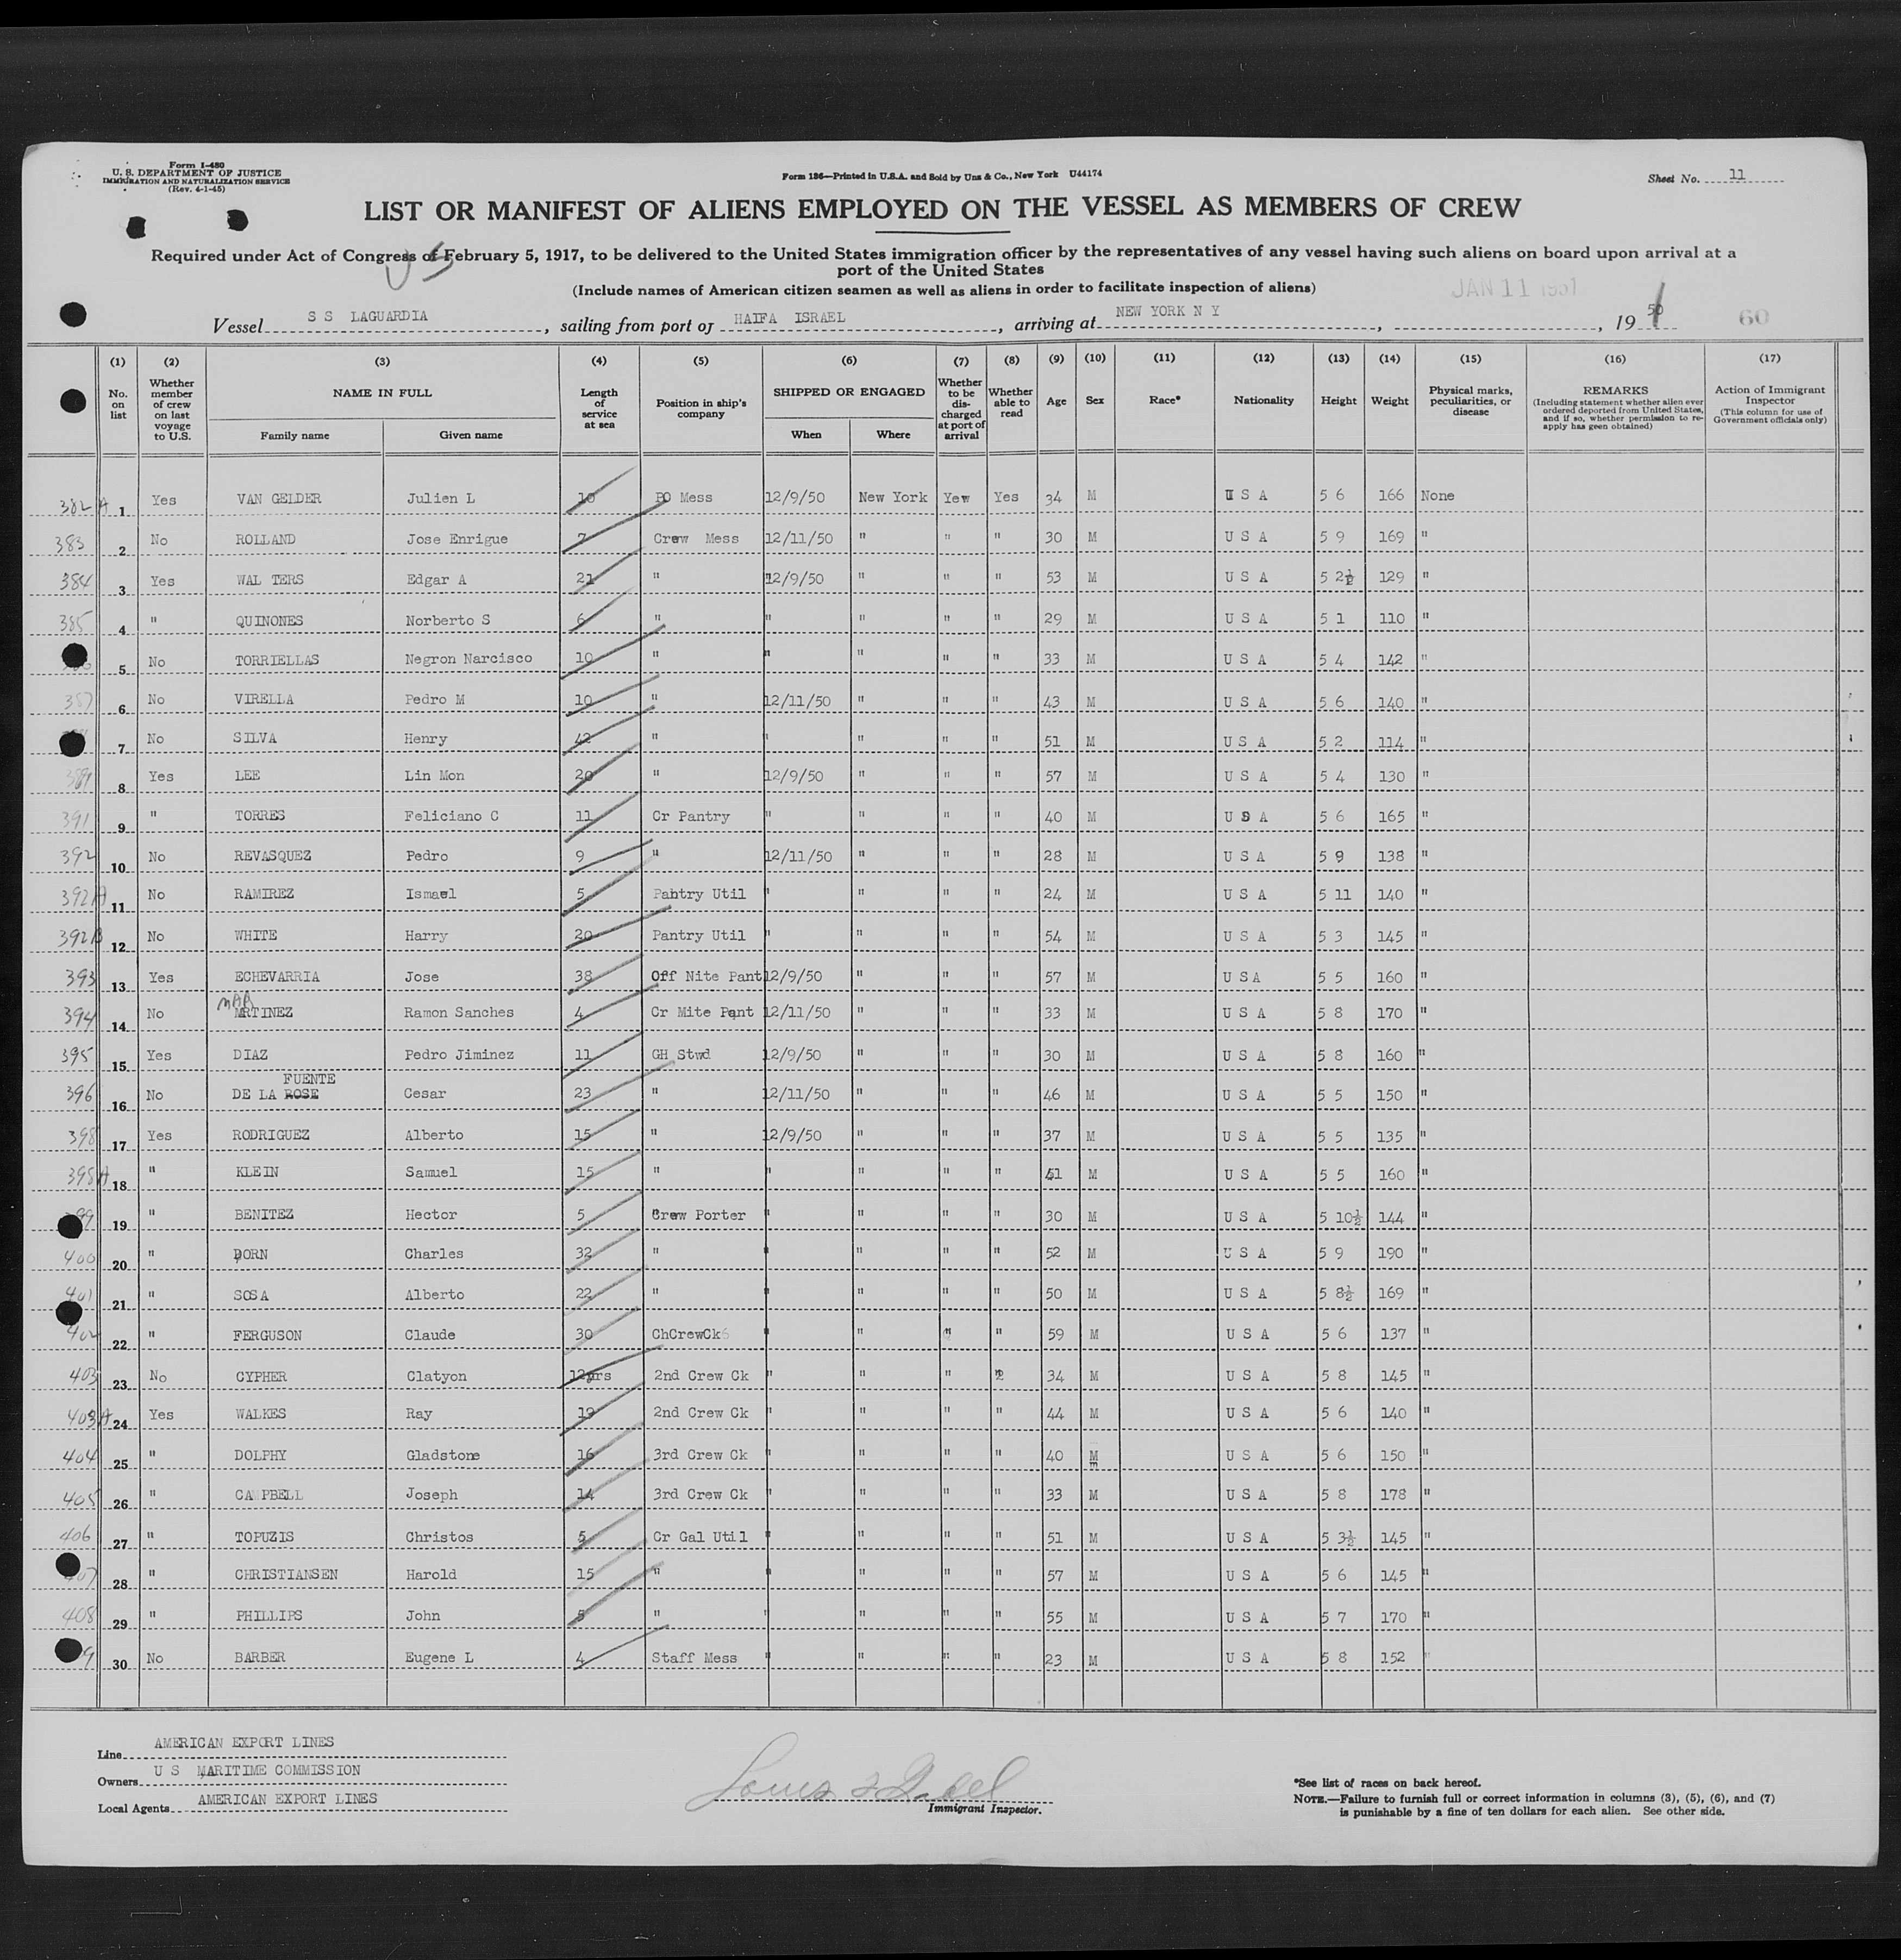 Form I-480
U. S. DEPARTMENT OF JUSTICE
IMMIGRATION AND NATURALIZATION SERVICE
(Rev. 4-1-45)
Form 186—Printed in U.S.A. and Sold by Unz & Co., New York U44174
Sheet No. 11
LIST OR MANIFEST OF ALIENS EMPLOYED ON THE VESSEL AS MEMBERS OF CREW
Required under Act of Congress of February 5, 1917, to be delivered to the United States immigration officer by the representatives of any vessel having such aliens on board upon arrival at a
port of the United States
(Include names of American citizen seamen as well as aliens in order to facilitate inspection of aliens)
JAN 11 1951
Vessel S S LAGUARDIA, sailing from port of HAIFA ISRAEL, arriving at NEW YORK N Y, 19 50
60
(1) (2) (3) (4) (5) (6) (7) (8) (9) (10) (11) (12) (13) (14) (15) (16) (17)
No. on list
Whether member of crew on last voyage to U.S.
NAME IN FULL
Family name Given name
Length of service at sea
Position in ship's company
SHIPPED OR ENGAGED
When Where
Whether to be discharged at port of arrival
Whether able to read
Age
Sex
Race*
Nationality
Height
Weight
Physical marks, peculiarities, or disease
REMARKS
(Including statement whether alien ever ordered deported from United States, and if so, whether permission to re-apply has geen obtained)
Action of Immigrant Inspector
(This column for use of Government officials only)
382 A 1 Yes VAN GELDER Julien L 10 PO Mess 12/9/50 New York Yew Yes 34 M U S A 5 6 166 None
383 2 No ROLLAND Jose Enrigue 7 Crew Mess 12/11/50 " " " 30 M U S A 5 9 169 "
384 3 Yes WAL TERS Edgar A 21 " 12/9/50 " " " 53 M U S A 5 2½ 129 "
385 4 " QUINONES Norberto S 6 " " " " " 29 M U S A 5 1 110 "
5 No TORRIELLAS Negron Narcisco 10 " " " " " 33 M U S A 5 4 142 "
387 6 No VIRELLA Pedro M 10 " 12/11/50 " " " 43 M U S A 5 6 140 "
7 No SILVA Henry 42 " " " " " 51 M U S A 5 2 114 "
389 8 Yes LEE Lin Mon 20 " 12/9/50 " " " 57 M U S A 5 4 130 "
391 9 " TORRES Feliciano C 11 Cr Pantry " " " " 40 M U S A 5 6 165 "
392 10 No REVASQUEZ Pedro 9 " 12/11/50 " " " 28 M U S A 5 9 138 "
392A 11 No RAMIREZ Ismael 5 Pantry Util " " " " 24 M U S A 5 11 140 "
392B 12 No WHITE Harry 20 Pantry Util " " " " 54 M U S A 5 3 145 "
393 13 Yes ECHEVARRIA Jose 38 Off Nite Pant 12/9/50 " " " 57 M U S A 5 5 160 "
MAR
394 14 No MRTINEZ Ramon Sanches 4 Cr Mite Pant 12/11/50 " " " 33 M U S A 5 8 170 "
395 15 Yes DIAZ Pedro Jiminez 11 GH Stwd 12/9/50 " " " 30 M U S A 5 8 160 "
FUENTE
396 16 No DE LA ROSE Cesar 23 " 12/11/50 " " " 46 M U S A 5 5 150 "
398 17 Yes RODRIGUEZ Alberto 15 " 12/9/50 " " " 37 M U S A 5 5 135 "
398A 18 " KLEIN Samuel 15 " " " " " 41 M U S A 5 5 160 "
19 " BENITEZ Hector 5 Crew Porter " " " " 30 M U S A 5 10½ 144 "
400 20 " DORN Charles 32 " " " " " 52 M U S A 5 9 190 "
401 21 " SOSA Alberto 22 " " " " " 50 M U S A 5 8½ 169 "
402 22 " FERGUSON Claude 30 ChCrewCk " " " " 59 M U S A 5 6 137 "
403 23 No CYPHER Clatyon 12yrs 2nd Crew Ck " " " " 34 M U S A 5 8 145 "
403A 24 Yes WALKES Ray 19 2nd Crew Ck " " " " 44 M U S A 5 6 140 "
404 25 " DOLPHY Gladstone 16 3rd Crew Ck " " " " 40 M U S A 5 6 150 "
405 26 " CAMPBELL Joseph 14 3rd Crew Ck " " " " 33 M U S A 5 8 178 "
406 27 " TOPUZIS Christos 5 Cr Gal Util " " " " 51 M U S A 5 3½ 145 "
407 28 " CHRISTIANSEN Harold 15 " " " " " 57 M U S A 5 6 145 "
408 29 " PHILLIPS John 5 " " " " " 55 M U S A 5 7 170 "
30 No BARBER Eugene L 4 Staff Mess " " " " 23 M U S A 5 8 152 "
Line AMERICAN EXPORT LINES
Owners U S MARITIME COMMISSION
Local Agents AMERICAN EXPORT LINES
Immigrant Inspector.
*See list of races on back hereof.
NOTE.—Failure to furnish full or correct information in columns (3), (5), (6), and (7)
is punishable by a fine of ten dollars for each alien. See other side.